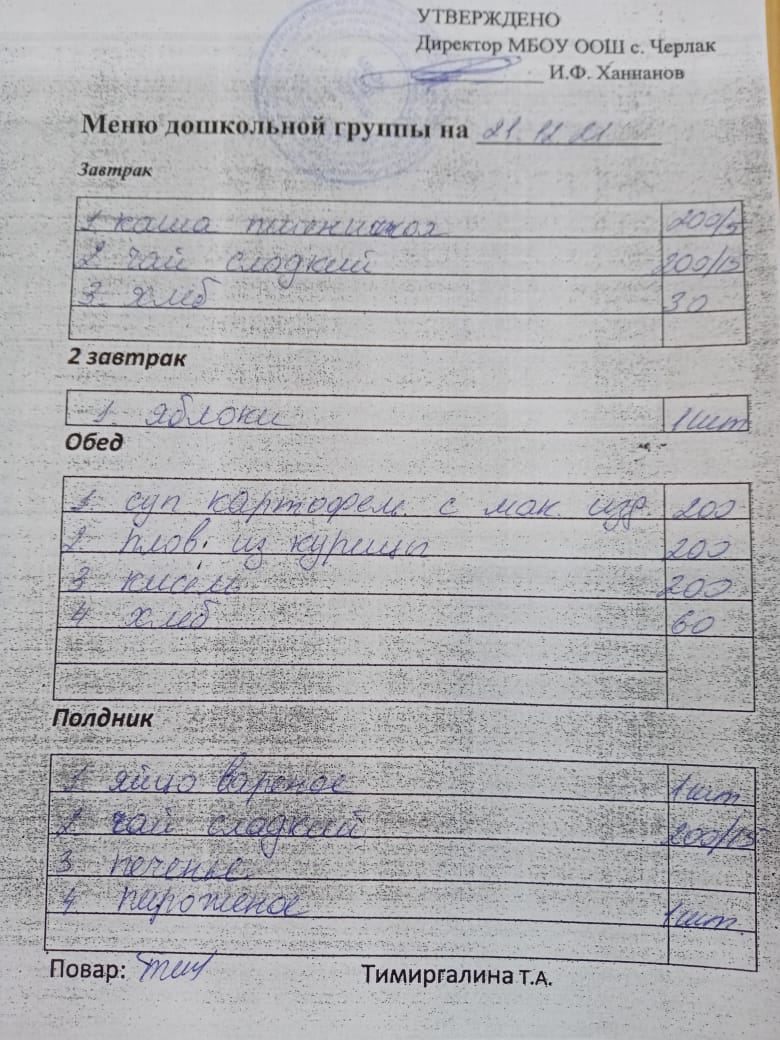 УТВЕРЖДЕНО
Директор МБОУ ООШ с. Черлак
И.Ф. Ханнанов
Меню дошкольной группы на 21.12.21
Завтрак
1 каша пшеничная 200/5
2 чай сладкий 200/15
3. хлеб 30
2 завтрак
1. яблоки 1шт
Обед
1 суп картофел. с мак изд. 200
2 плов из курицы 200
3 кисел 200
4 хлеб 60
Полдник
1 яйцо вареное 1шт
2 чай сладкий 200/15
3 печенье
4. пироженое 1шт
Повар: Тимиргалина Т.А.